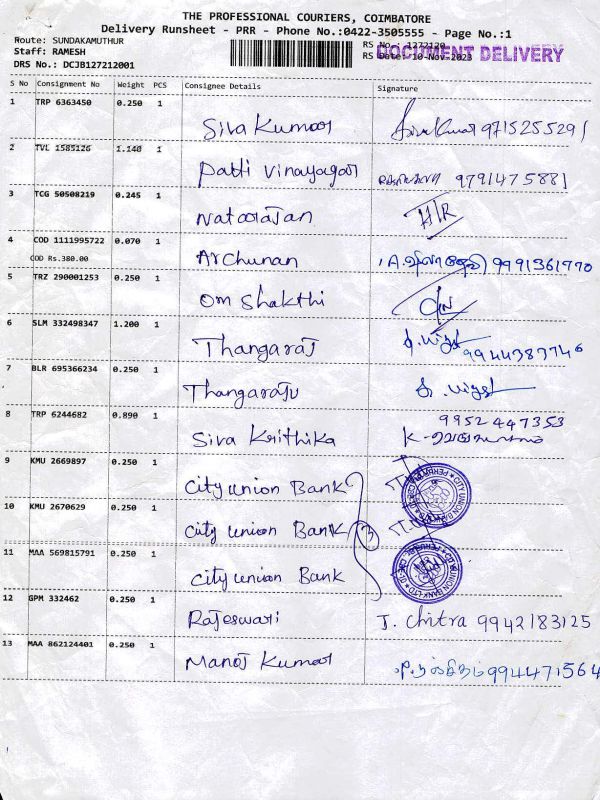 THE PROFESSIONAL COURIERS, COIMBATORE
Delivery Runsheet - PRR - Phone No.:0422-3505555 - Page No.:1
Route: SUNDAKAMUTHUR
Staff: RAMESH
DRS No.: DCJB127212001
RS No.: 1272120
RS Date: 10-Nov-2023
DOCUMENT DELIVERY
S No Consignment No Weight PCS Consignee Details Signature
1 TRP 6363450 0.250 1 Siva Kumar Sivakumar 9715255291
2 TVL 1585126 1.140 1 Patti Vinayagar 9791475881
3 TCG 50508219 0.245 1 Natarajan H/R
4 COD 1111995722 0.070 1 Archunan 9991361770
COD Rs.380.00
5 TRZ 290001253 0.250 1 Om Shakthi
6 SLM 332498347 1.200 1 Thangaraj 9944383746
7 BLR 695366234 0.250 1 Thangaraju
8 TRP 6244682 0.890 1 Siva Krithika 9952447353
9 KMU 2669897 0.250 1 City Union Bank
10 KMU 2670629 0.250 1 City Union Bank 3
11 MAA 569815791 0.250 1 City Union Bank
12 GPM 332462 0.250 1 Rajeswari J. Chitra 9942183125
13 MAA 862124401 0.250 1 Manoj Kumar 9944471564